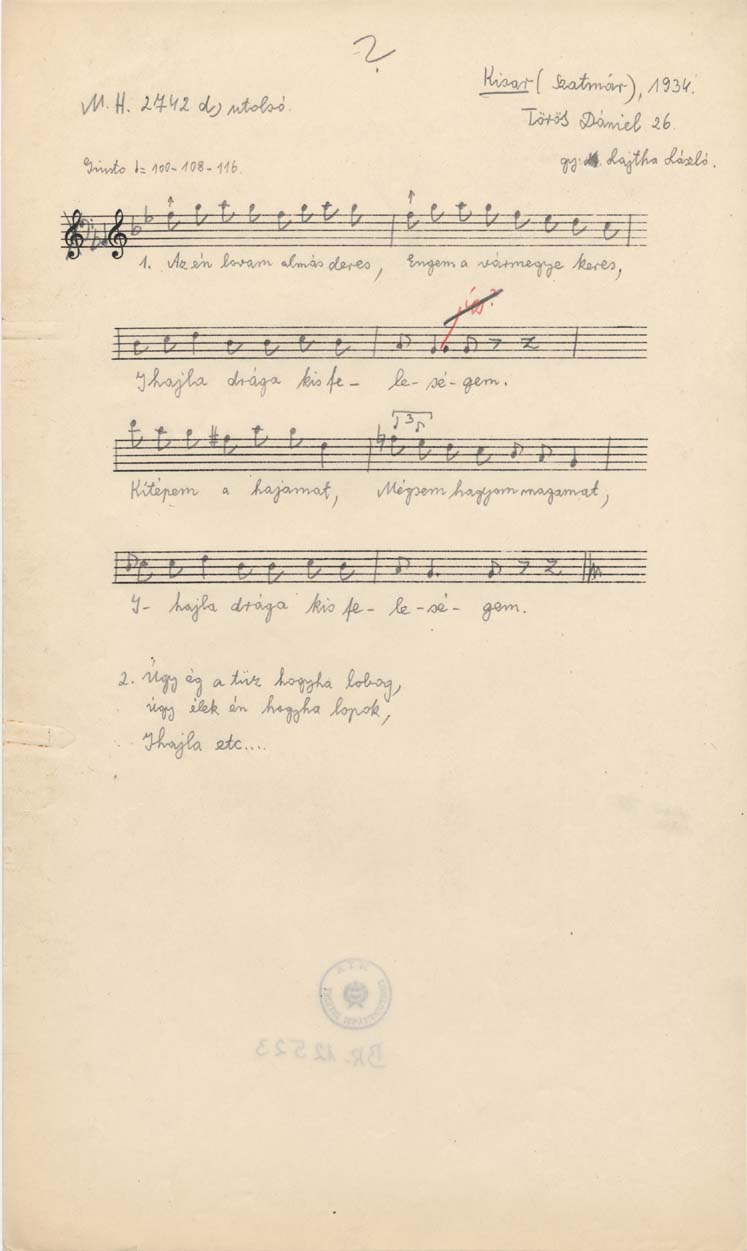 ?
M. H. 2742 d) utolsó.
Kisar (Szatmár), 1934.
Törös Dániel 26.
gy: Lajtha László.
Giusto = 100-108-116.
1. Az én lovam almás deres, Engem a vármegye keres,
Ihajla drága kis fe- le- sé- gem.
3
Kitépem a hajamat, Mégsem hagyom magamat,
I- hajla drága kis fe- le- sé- gem.
2. Úgy ég a tüz hogyha lobog,
úgy élek én hogyha lopok,
Ihajla etc....
BR. 12523